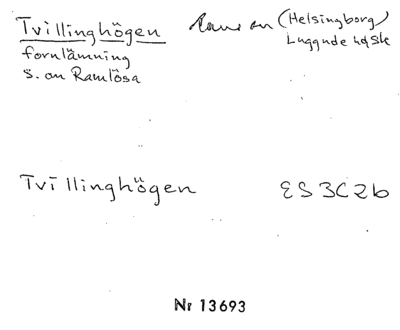 Tvillinghögen Raus sn (Helsingborg)
fornlämning Luggude hd Sk
S. om Ramlösa
Tvillinghögen ES 3C2b
Nr 13693